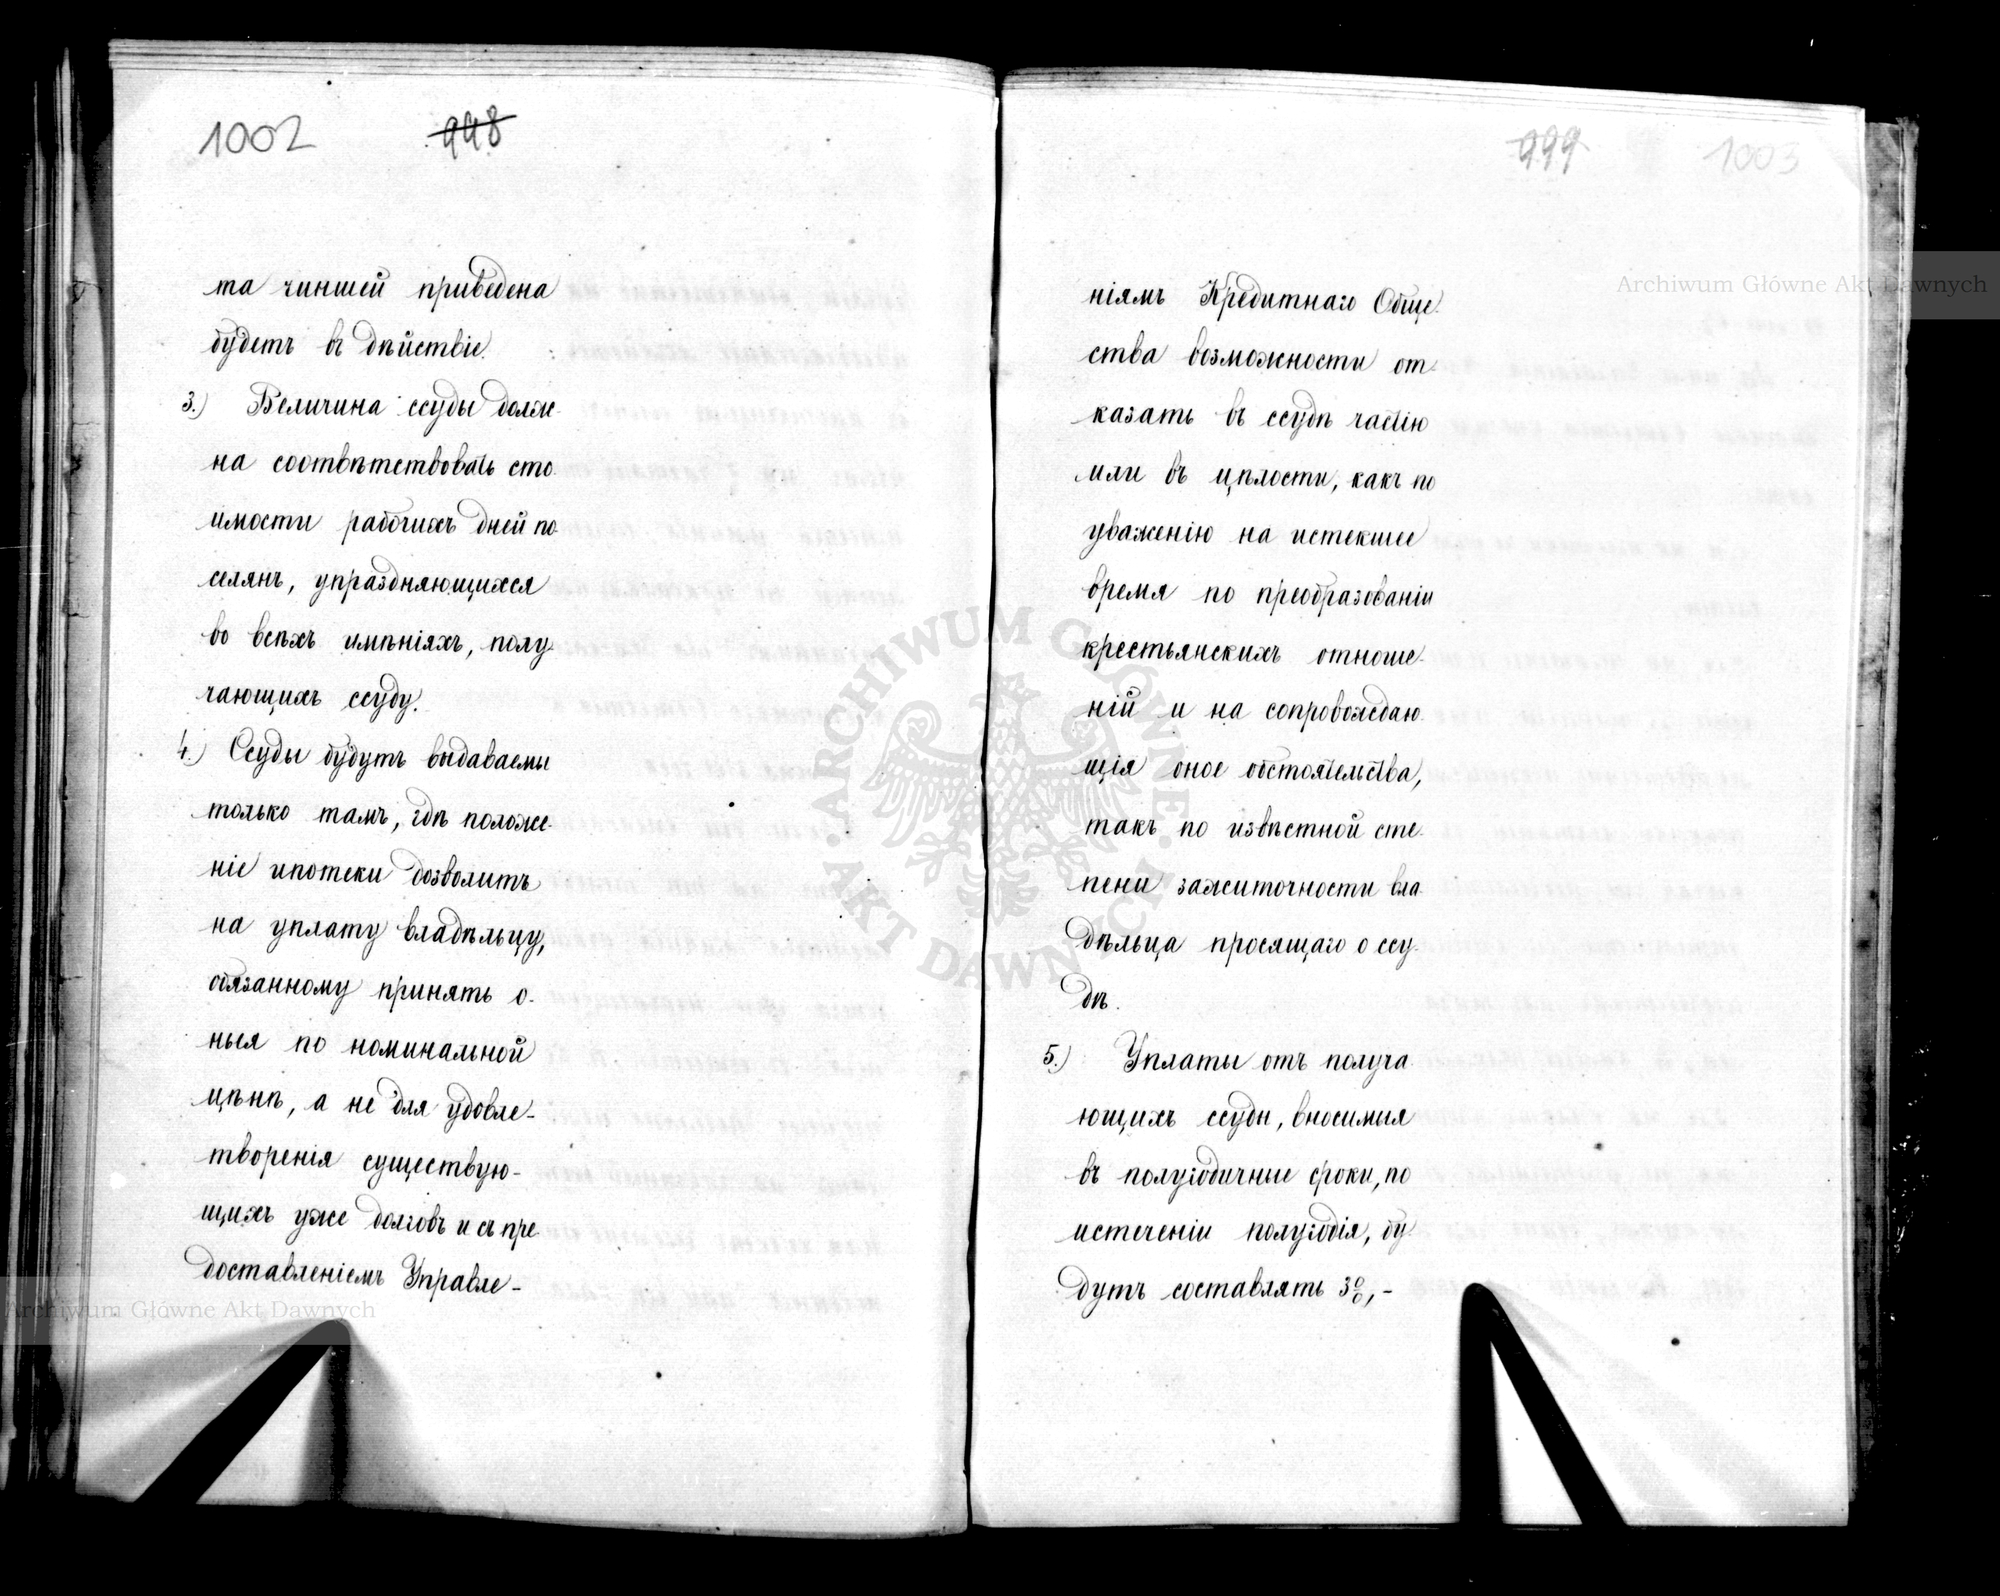 1002 998
та чиншей приведена
будетъ въ дѣйствіе.
3.) Величина ссуды долж-
на соотвѣтствовать сто-
имости рабочихъ дней по-
селянъ, упраздняющихся
во всѣхъ имѣніяхъ, полу-
чающихъ ссуду.
4.) Ссуды будутъ выдаваемы
только тамъ, гдѣ положе-
ніе ипотеки дозволитъ
на уплату владѣльцу,
обязанному принять о-
ныя по номинальной
цѣнѣ, а не для удовле-
творенія существую-
щихъ уже долговъ и съ пре-
доставленіемъ Управле-
999 1003
ніямъ Кредитнаго Обще-
ства возможности от-
казать въ ссудѣ частію
или въ цѣлости, какъ по
уваженію на истекшее
время по преобразованіи
крестьянскихъ отноше-
ній и на сопровождаю-
щія оное обстоятельства,
такъ по извѣстной сте-
пени зажиточности вла-
дѣльца просящаго о ссу-
дѣ.
5.) Уплаты отъ получа-
ющихъ ссуды, вносимыя
въ полугодичные сроки, по
истеченіи полугодія, бу-
дутъ составлять 3%, -
Archiwum Główne Akt Dawnych
Archiwum Główne Akt Dawnych
ARCHIWUM GŁÓWNE AKT DAWNYCH